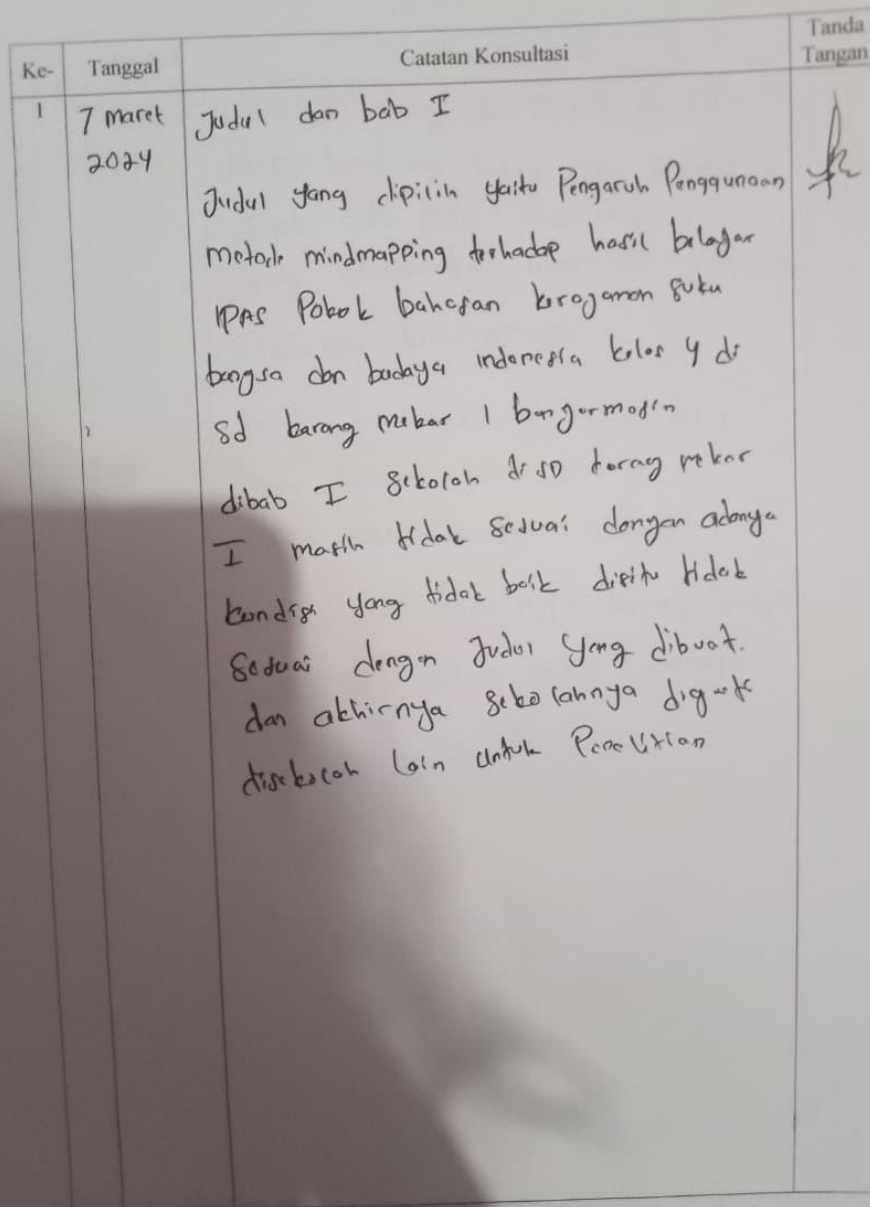 Ke- Tanggal Catatan Konsultasi Tanda Tangan
1 7 maret 2024 Judul dan bab I
Judul yang dipilih yaitu Pengaruh Penggunaan
metode mindmapping terhadap hasil belajar
IPAS Pokok bahasan keragaman suku
bangsa dan budaya indonesia kelas 4 di
sd karang mekar 1 banjarmasin
dibab I sekolah di SD karang mekar
I masih tidak sesuai dengan adanya
kondisi yang tidak baik disitu tidak
sesuai dengan Judul yang dibuat.
dan akhirnya sekolahnya
disekolah lain untuk Penelitian